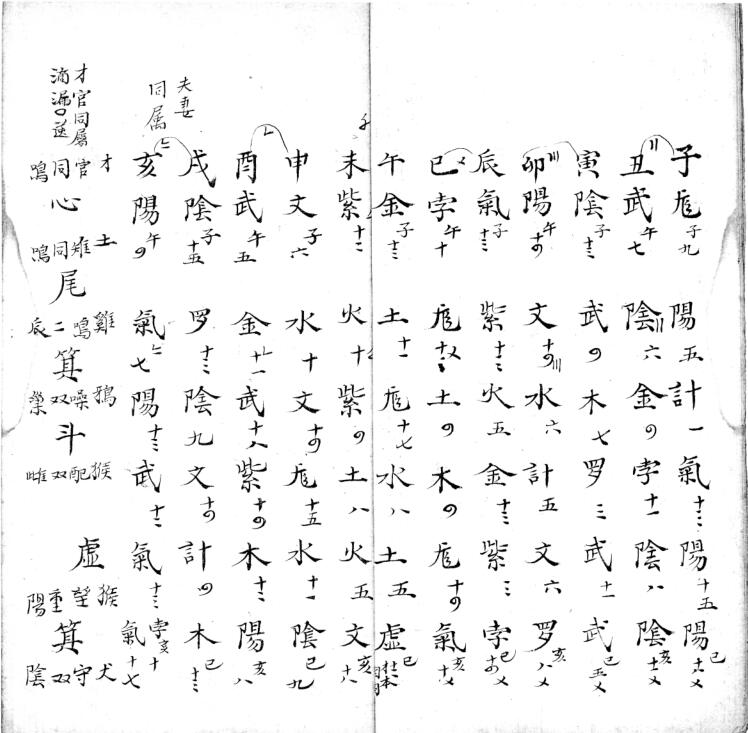 子 彪 子九 陽 五 計 一 氣 十三 陽 十五 陽 巳
丑 武 午七 陰 六 金 〤 孛 十一 陰 八 陰 亥
寅 陰 子十三 武 〤 木 七 罗 三 武 十一 武 巳
卯 陽 午 文 水 六 計 五 文 六 罗 亥
辰 氣 子十三 紫 十三 火 五 金 十三 紫 三 孛 巳
巳 孛 午十 彪 土 〤 木 〤 彪 十〤 氣 亥
午 金 子十三 土 十一 彪 十七 水 八 土 五 虚 巳
未 紫 十二 火 十 紫 〤 土 八 火 五 文 亥十八
申 文 子六 水 十 文 十〤 彪 十五 水 十一 陰 巳九
酉 武 午五 金 十一 武 十八 紫 十〤 木 十三 陽 亥八
戌 陰 子十五 罗 十三 陰 九 文 十〤 計 〤 木 巳十三
亥 陽 午〤 氣 七 陽 十三 武 十三 氣 十三 孛 亥十 氣 十七
夫妻
同属
才官同屬
滴漏
才官同鳴
心
土雉同鳴
尾
雞鳴二辰
箕
鴉噪双
斗
猴配双雌
虚
猴望重陽
箕
犬守双陰